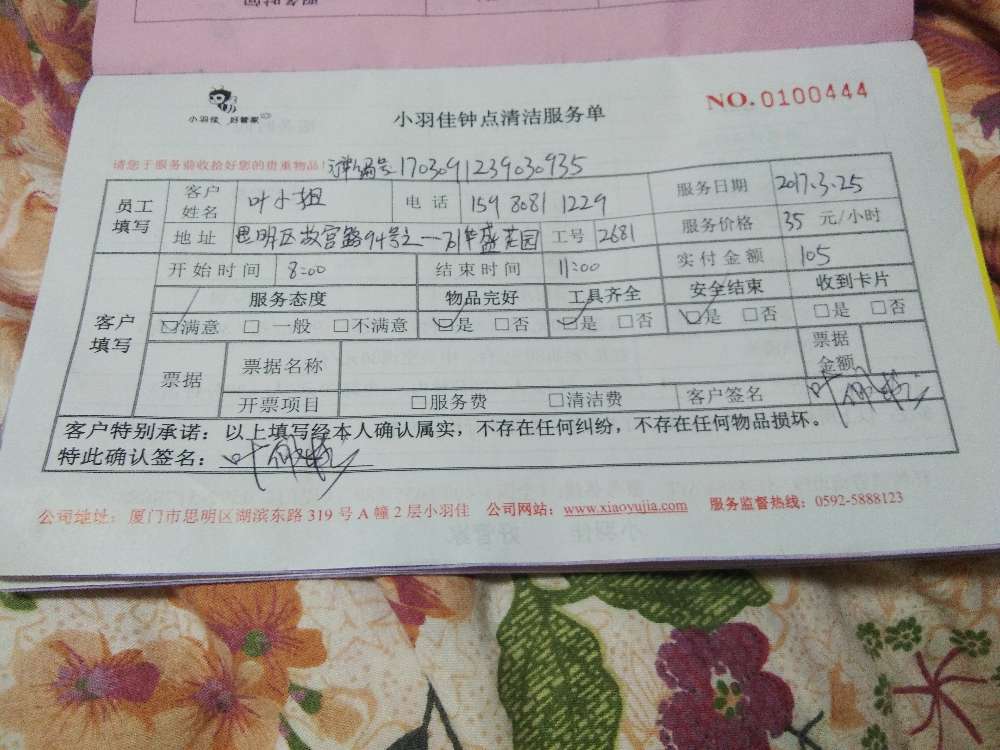 服务时间
小羽佳 好管家
小羽佳钟点清洁服务单
NO.0100444
请您于服务前收拾好您的贵重物品!
订单编号 1703091239030935
员工填写
客户姓名 叶小姐 电话 159 8081 1229 服务日期 2017.3.25
地址 思明区故宫路94号之一 华盛花园 工号 2681 服务价格 35 元/小时
客户填写
开始时间 8:00 结束时间 11:00 实付金额 105
服务态度 物品完好 工具齐全 安全结束 收到卡片
☑满意 □ 一般 □不满意 ☑是 □否 ☑是 □否 ☑是 □否 □是 □否
票据 票据名称 票据金额
开票项目 □服务费 □清洁费 客户签名
客户特别承诺：以上填写经本人确认属实，不存在任何纠纷，不存在任何物品损坏。
特此确认签名：
公司地址：厦门市思明区湖滨东路 319 号 A 幢 2 层小羽佳 公司网站：www.xiaoyujia.com 服务监督热线：0592-5888123